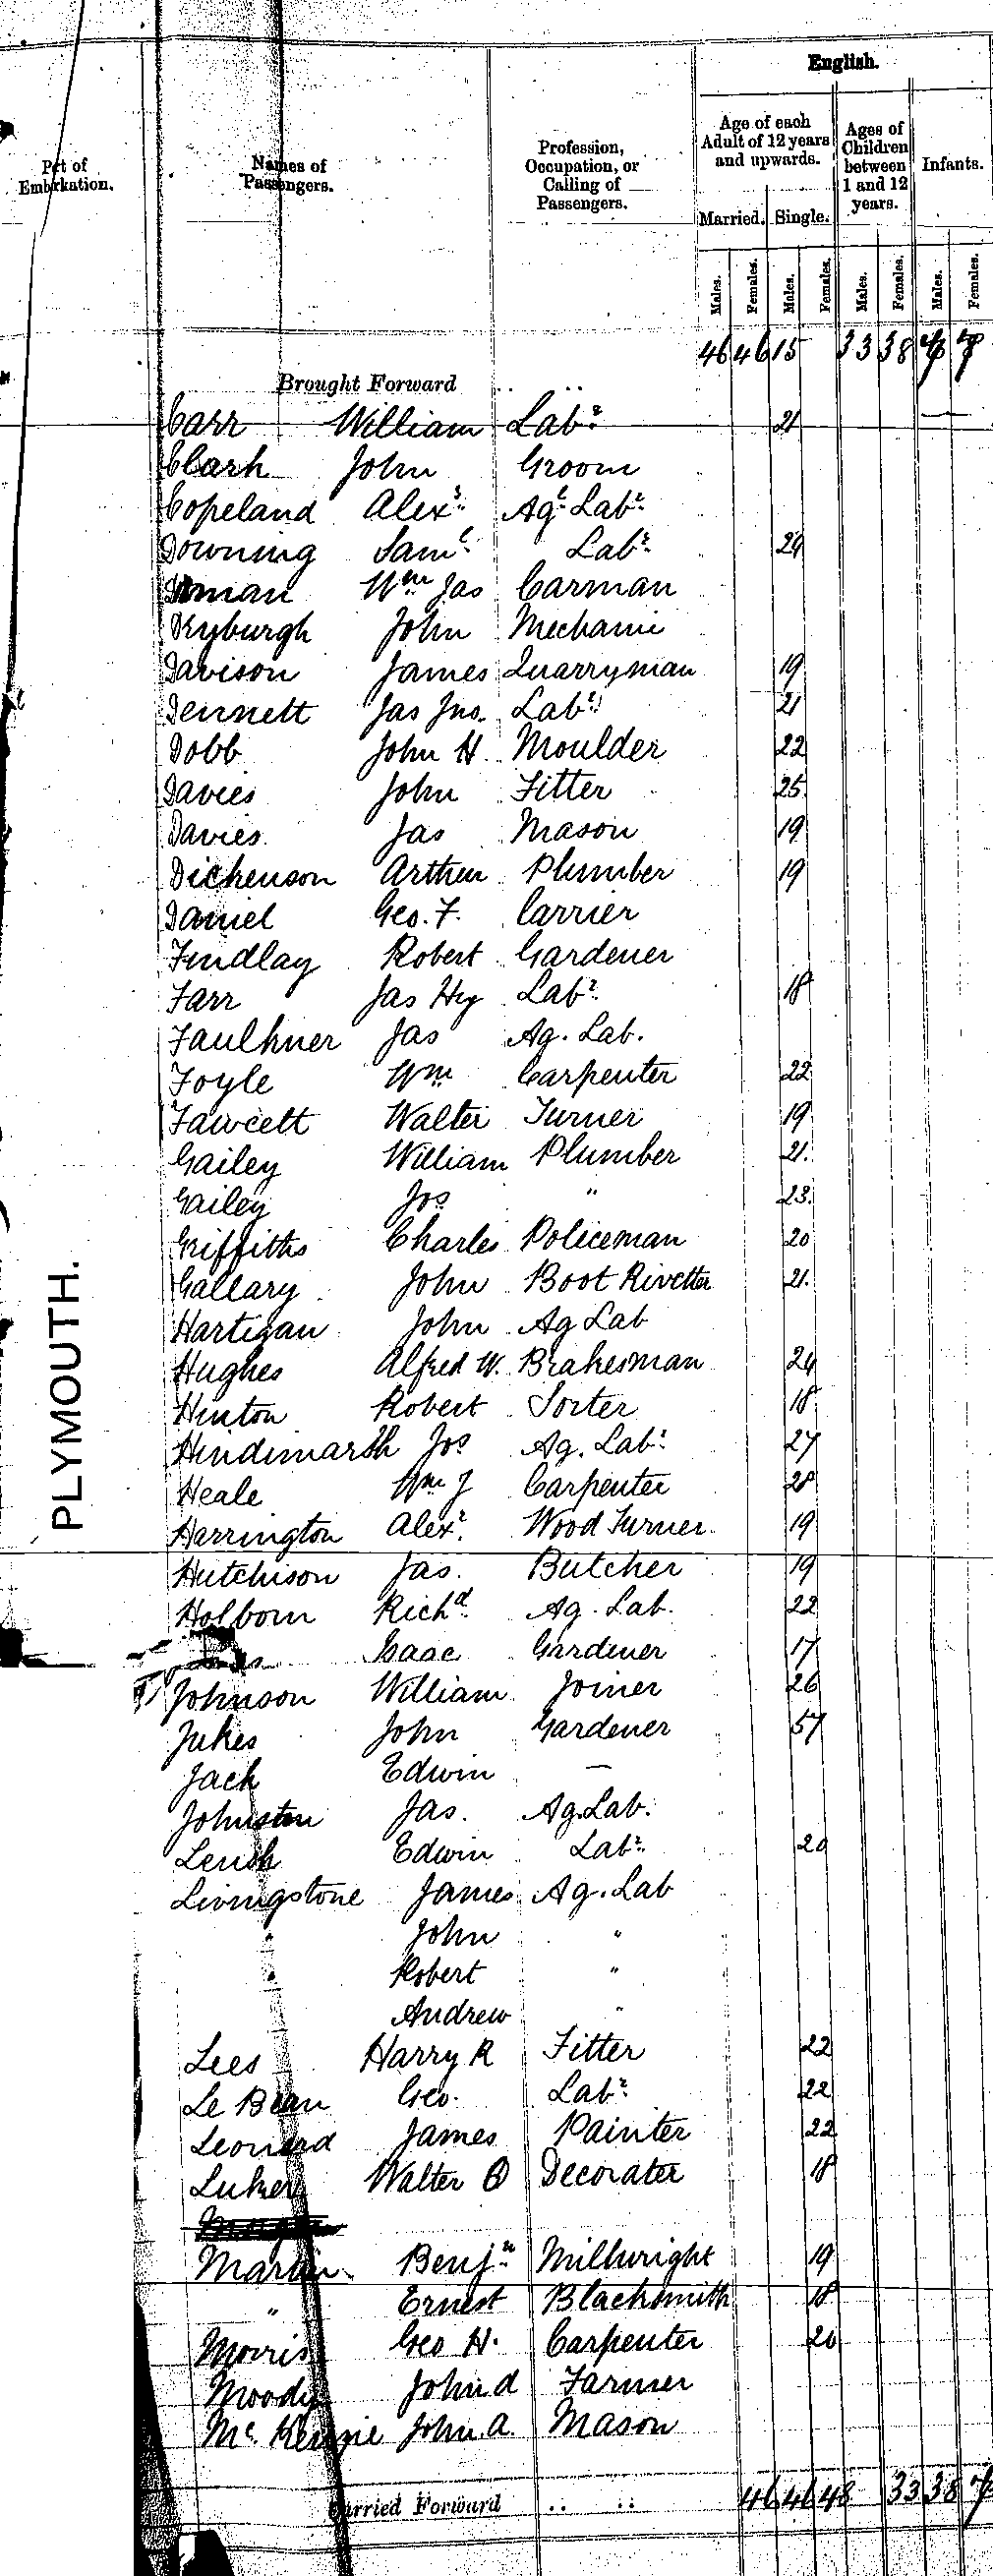 English.
Port of Embarkation.
Names of Passengers.
Profession, Occupation, or Calling of Passengers.
Age of each Adult of 12 years and upwards.
Ages of Children between 1 and 12 years.
Infants.
Married. Single.
Males. Females. Males. Females. Males. Females. Males. Females.
46 46 15 33 38
Brought Forward
PLYMOUTH.
Carr William Labr 21
Clark John Groom
Copeland Alexr Agl Labr
Downing Saml Labr
Wm Jas Carman
Dryburgh John Mechanic
Davison James Quarryman 19
Dennett Jas Jno. Labr 21
Dobb John H. Moulder 22
Davies John Fitter 25
Davies Jas Mason 19
Dickenson Arthur Plumber 19
Daniel Geo. F. Carrier
Findlay Robert Gardener
Farr Jas Hy Labr 18
Faulkner Jas Ag. Lab.
Foyle Wm Carpenter 22
Fawcett Walter Turner 19
Gailey William Plumber 21.
Gailey Jos " 23.
Griffiths Charles Policeman 20
Gallary John Boot Rivetter 21.
Hartigan John Ag Lab
Hughes Alfred W. Brakesman 24
Hinton Robert Sorter 18
Hindimarsh Jos Ag. Labr 27
Heale Wm J Carpenter 20
Harrington Alexr Wood Turner. 19
Hutchison Jas. Butcher 19
Holborn Richd Ag. Lab. 22
Isaac Gardener 17
Johnson William Joiner 26
Jukes John Gardener 57
Jack Edwin —
Johnston Jas. Ag. Lab.
Edwin Labr 20
Livingstone James Ag. Lab
John "
Robert "
Andrew "
Lees Harry R Fitter 22
Le Beau Geo. Labr 22
Leonard James Painter 22
Luker Walter O Decorater 18
Martin Benjn Millwright 19
" Ernest Blacksmith 18
Morris Geo H. Carpenter 20
Moody John d Farmer
Mc Kenzie John A. Mason
Carried Forward 46 46 48 33 38